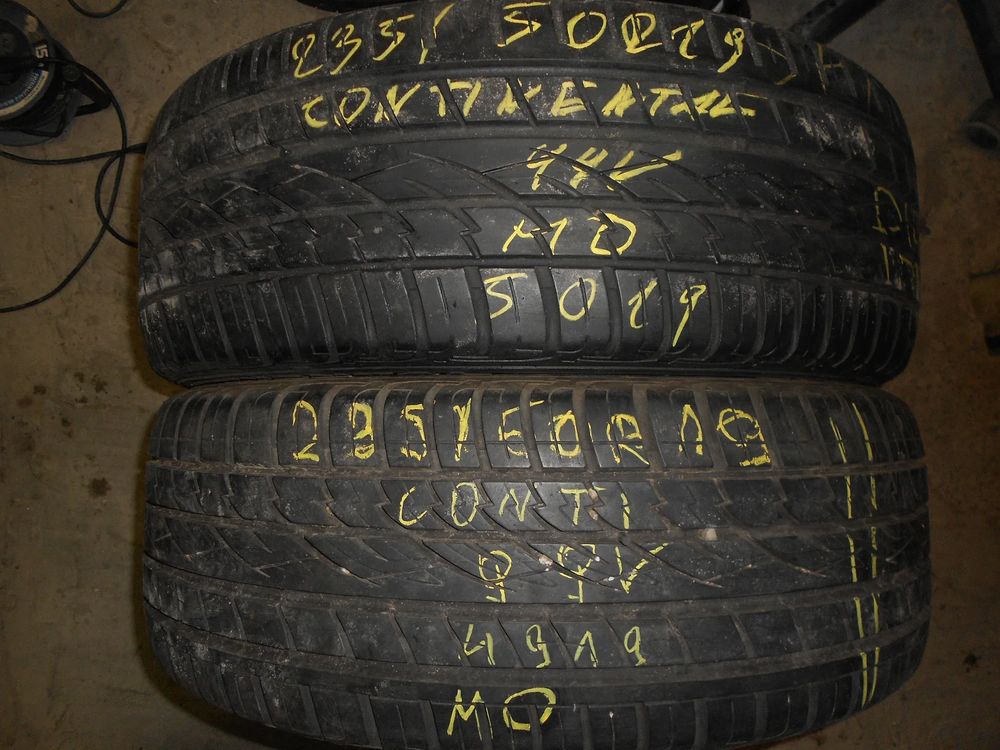 235/50R19
CONTINENTAL
99V
MO
5019
235/50R19
CONTI
99V
4919
MO